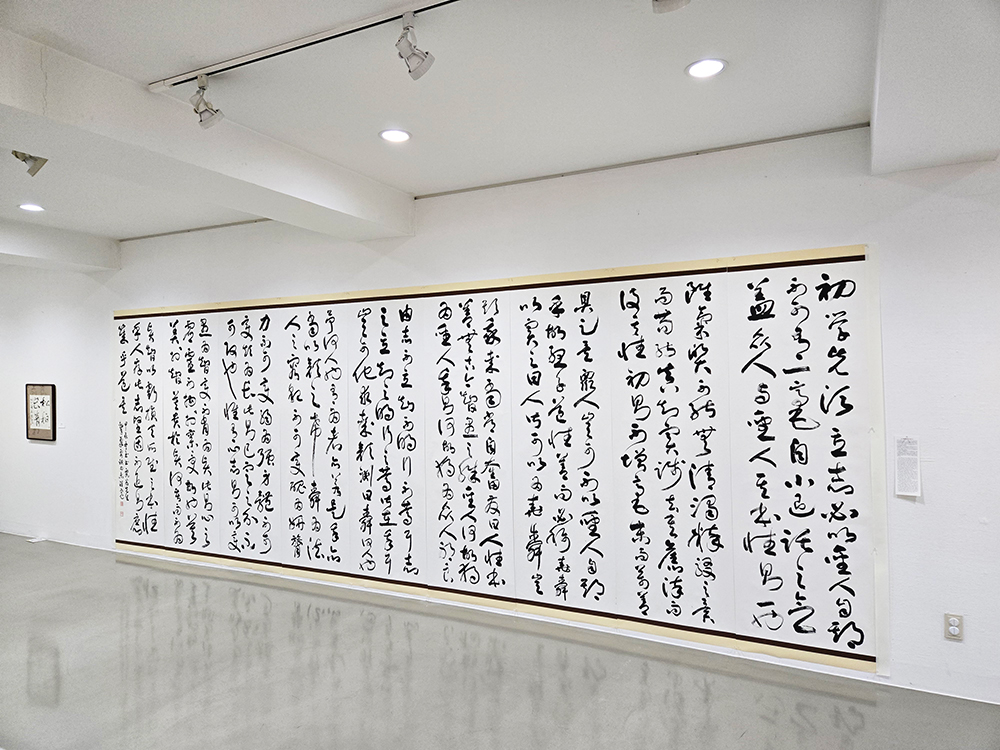 初学先須立志必以聖人自期
不可有一毫自小退託之念
盖衆人與聖人其本性則一也
雖氣質不能無清濁粹駁之異
而苟能真知實踐去其舊染而
復其性初則不增毫末而万善
具足矣衆人豈可不以聖人自期
乎故孟子道性善而必稱堯舜
以實之曰人皆可以為堯舜豈
欺我哉當常自奮發曰人性本
善無古今智愚之殊聖人何故獨
為聖人我則何故獨為衆人耶良
由志不立知不明行不篤耳志
之立知之明行之篤皆在我耳
豈可他求哉顔淵曰舜何人也
予何人也有為者亦若是我亦
當以顔之希舜為法
人之容貌不可變醜為姸膂
力不可變弱為强身體不可
變短為長此則已定之分不
可改也惟有心志則可以變
愚為智變不肖為賢此則心之
虛靈不拘於稟受故也莫
美於智莫貴於賢何苦而不為
賢智以虧損天所賦之本性
乎人存此志堅固不退則庶
幾乎道矣